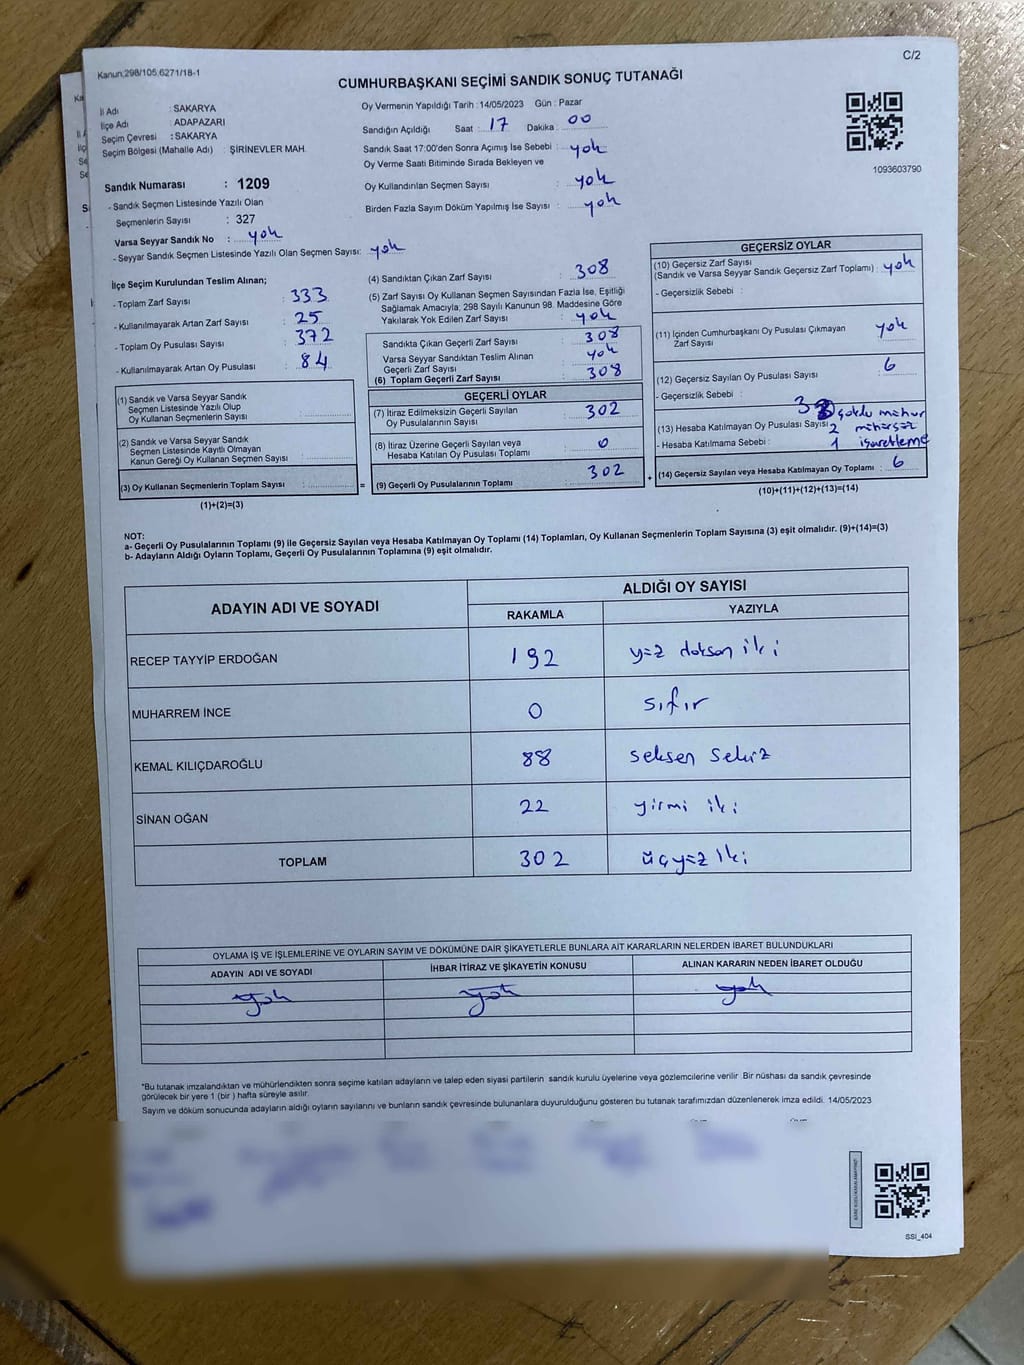 Kanun,298/105,6271/18-1
C/2
CUMHURBAŞKANI SEÇİMİ SANDIK SONUÇ TUTANAĞI
İl Adı : SAKARYA
İlçe Adı : ADAPAZARI
Seçim Çevresi : SAKARYA
Seçim Bölgesi (Mahalle Adı) : ŞİRİNEVLER MAH.
Oy Vermenin Yapıldığı Tarih : 14/05/2023 Gün : Pazar
Sandığın Açıldığı Saat : 17 Dakika : 00
Sandık Saat 17:00'den Sonra Açımış İse Sebebi : yok
Oy Verme Saati Bitiminde Sırada Bekleyen ve
Oy Kullandırılan Seçmen Sayısı : yok
Birden Fazla Sayım Döküm Yapılmış İse Sayısı : yok
1093603790
Sandık Numarası : 1209
- Sandık Seçmen Listesinde Yazılı Olan
Seçmenlerin Sayısı : 327
Varsa Seyyar Sandık No : yok
- Seyyar Sandık Seçmen Listesinde Yazılı Olan Seçmen Sayısı: yok
İlçe Seçim Kurulundan Teslim Alınan;
- Toplam Zarf Sayısı : 333
- Kullanılmayarak Artan Zarf Sayısı : 25
- Toplam Oy Pusulası Sayısı : 372
- Kullanılmayarak Artan Oy Pusulası : 84
(1) Sandık ve Varsa Seyyar Sandık
Seçmen Listesinde Yazılı Olup
Oy Kullanan Seçmenlerin Sayısı :
(2) Sandık ve Varsa Seyyar Sandık
Seçmen Listesinde Kayıtlı Olmayan
Kanun Gereği Oy Kullanan Seçmen Sayısı :
(3) Oy Kullanan Seçmenlerin Toplam Sayısı :
(1)+(2)=(3)
(4) Sandıktan Çıkan Zarf Sayısı : 308
(5) Zarf Sayısı Oy Kullanan Seçmen Sayısından Fazla İse, Eşitliği
Sağlamak Amacıyla, 298 Sayılı Kanunun 98. Maddesine Göre
Yakılarak Yok Edilen Zarf Sayısı : yok
Sandıkta Çıkan Geçerli Zarf Sayısı : 308
Varsa Seyyar Sandıktan Teslim Alınan
Geçerli Zarf Sayısı : yok
(6) Toplam Geçerli Zarf Sayısı : 308
GEÇERLİ OYLAR
(7) İtiraz Edilmeksizin Geçerli Sayılan
Oy Pusulalarının Sayısı : 302
(8) İtiraz Üzerine Geçerli Sayılan veya
Hesaba Katılan Oy Pusulası Toplamı : 0
= (9) Geçerli Oy Pusulalarının Toplamı : 302 +
GEÇERSİZ OYLAR
(10) Geçersiz Zarf Sayısı
(Sandık ve Varsa Seyyar Sandık Geçersiz Zarf Toplamı) : yok
- Geçersizlik Sebebi :
(11) İçinden Cumhurbaşkanı Oy Pusulası Çıkmayan
Zarf Sayısı : yok
(12) Geçersiz Sayılan Oy Pusulası Sayısı : 6
- Geçersizlik Sebebi :
3 çoklu mühür
(13) Hesaba Katılmayan Oy Pusulası Sayısı 2 mühürsüz
- Hesaba Katılmama Sebebi : 1 işaretleme
(14) Geçersiz Sayılan veya Hesaba Katılmayan Oy Toplamı : 6
(10)+(11)+(12)+(13)=(14)
NOT:
a- Geçerli Oy Pusulalarının Toplamı (9) ile Geçersiz Sayılan veya Hesaba Katılmayan Oy Toplamı (14) Toplamları, Oy Kullanan Seçmenlerin Toplam Sayısına (3) eşit olmalıdır. (9)+(14)=(3)
b- Adayların Aldığı Oyların Toplamı, Geçerli Oy Pusulalarının Toplamına (9) eşit olmalıdır.
ADAYIN ADI VE SOYADI ALDIĞI OY SAYISI
RAKAMLA YAZIYLA
RECEP TAYYİP ERDOĞAN 192 yüz doksan iki
MUHARREM İNCE 0 sıfır
KEMAL KILIÇDAROĞLU 88 seksen sekiz
SİNAN OĞAN 22 yirmi iki
TOPLAM 302 üçyüz iki
OYLAMA İŞ VE İŞLEMLERİNE VE OYLARIN SAYIM VE DÖKÜMÜNE DAİR ŞİKAYETLERLE BUNLARA AİT KARARLARIN NELERDEN İBARET BULUNDUKLARI
ADAYIN ADI VE SOYADI İHBAR İTİRAZ VE ŞİKAYETİN KONUSU ALINAN KARARIN NEDEN İBARET OLDUĞU
yok yok yok
*Bu tutanak imzalandıktan ve mühürlendikten sonra seçime katılan adayların ve talep eden siyasi partilerin sandık kurulu üyelerine veya gözlemcilerine verilir. Bir nüshası da sandık çevresinde
görülecek bir yere 1 (bir ) hafta süreyle asılır.
Sayım ve döküm sonucunda adayların aldığı oyların sayılarını ve bunların sandık çevresinde bulunanlara duyurulduğunu gösteren bu tutanak tarafımızdan düzenlenerek imza edildi. 14/05/2023
SSI_404